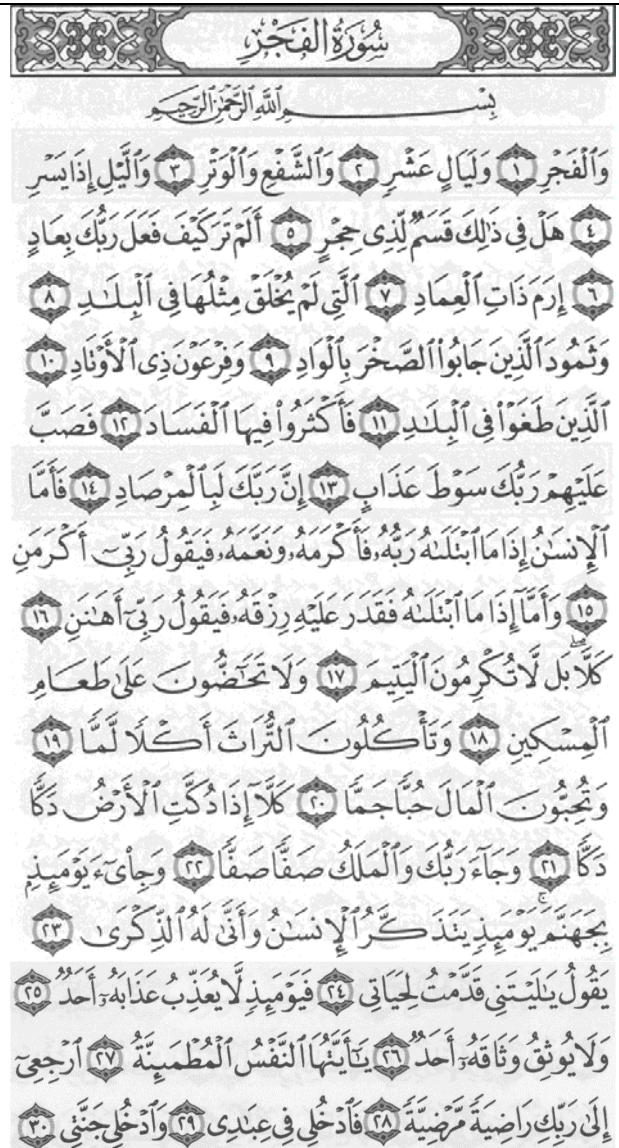 سُورَةُ الفَجْرِ
بِسْمِ اللَّهِ الرَّحْمَٰنِ الرَّحِيمِ
وَٱلْفَجْرِ ١ وَلَيَالٍ عَشْرٍ ٢ وَٱلشَّفْعِ وَٱلْوَتْرِ ٣ وَٱلَّيْلِ إِذَا يَسْرِ
٤ هَلْ فِى ذَٰلِكَ قَسَمٌ لِّذِى حِجْرٍ ٥ أَلَمْ تَرَ كَيْفَ فَعَلَ رَبُّكَ بِعَادٍ
٦ إِرَمَ ذَاتِ ٱلْعِمَادِ ٧ ٱلَّتِى لَمْ يُخْلَقْ مِثْلُهَا فِى ٱلْبِلَٰدِ ٨
وَثَمُودَ ٱلَّذِينَ جَابُوا۟ ٱلصَّخْرَ بِٱلْوَادِ ٩ وَفِرْعَوْنَ ذِى ٱلْأَوْتَادِ ١٠
ٱلَّذِينَ طَغَوْا۟ فِى ٱلْبِلَٰدِ ١١ فَأَكْثَرُوا۟ فِيهَا ٱلْفَسَادَ ١٢ فَصَبَّ
عَلَيْهِمْ رَبُّكَ سَوْطَ عَذَابٍ ١٣ إِنَّ رَبَّكَ لَبِٱلْمِرْصَادِ ١٤ فَأَمَّا
ٱلْإِنسَٰنُ إِذَا مَا ٱبْتَلَىٰهُ رَبُّهُۥ فَأَكْرَمَهُۥ وَنَعَّمَهُۥ فَيَقُولُ رَبِّىٓ أَكْرَمَنِ
١٥ وَأَمَّآ إِذَا مَا ٱبْتَلَىٰهُ فَقَدَرَ عَلَيْهِ رِزْقَهُۥ فَيَقُولُ رَبِّىٓ أَهَٰنَنِ ١٦
كَلَّا ۖ بَل لَّا تُكْرِمُونَ ٱلْيَتِيمَ ١٧ وَلَا تَحَٰٓضُّونَ عَلَىٰ طَعَامِ
ٱلْمِسْكِينِ ١٨ وَتَأْكُلُونَ ٱلتُّرَاثَ أَكْلًا لَّمًّا ١٩
وَتُحِبُّونَ ٱلْمَالَ حُبًّا جَمًّا ٢٠ كَلَّآ إِذَا دُكَّتِ ٱلْأَرْضُ دَكًّا
دَكًّا ٢١ وَجَآءَ رَبُّكَ وَٱلْمَلَكُ صَفًّا صَفًّا ٢٢ وَجِا۟ىٓءَ يَوْمَئِذٍۭ
بِجَهَنَّمَ ۚ يَوْمَئِذٍ يَتَذَكَّرُ ٱلْإِنسَٰنُ وَأَنَّىٰ لَهُ ٱلذِّكْرَىٰ ٢٣
يَقُولُ يَٰلَيْتَنِى قَدَّمْتُ لِحَيَاتِى ٢٤ فَيَوْمَئِذٍ لَّا يُعَذِّبُ عَذَابَهُۥٓ أَحَدٌ ٢٥
وَلَا يُوثِقُ وَثَاقَهُۥٓ أَحَدٌ ٢٦ يَٰٓأَيَّتُهَا ٱلنَّفْسُ ٱلْمُطْمَئِنَّةُ ٢٧ ٱرْجِعِىٓ
إِلَىٰ رَبِّكِ رَاضِيَةً مَّرْضِيَّةً ٢٨ فَٱدْخُلِى فِى عِبَٰدِى ٢٩ وَٱدْخُلِى جَنَّتِى ٣٠